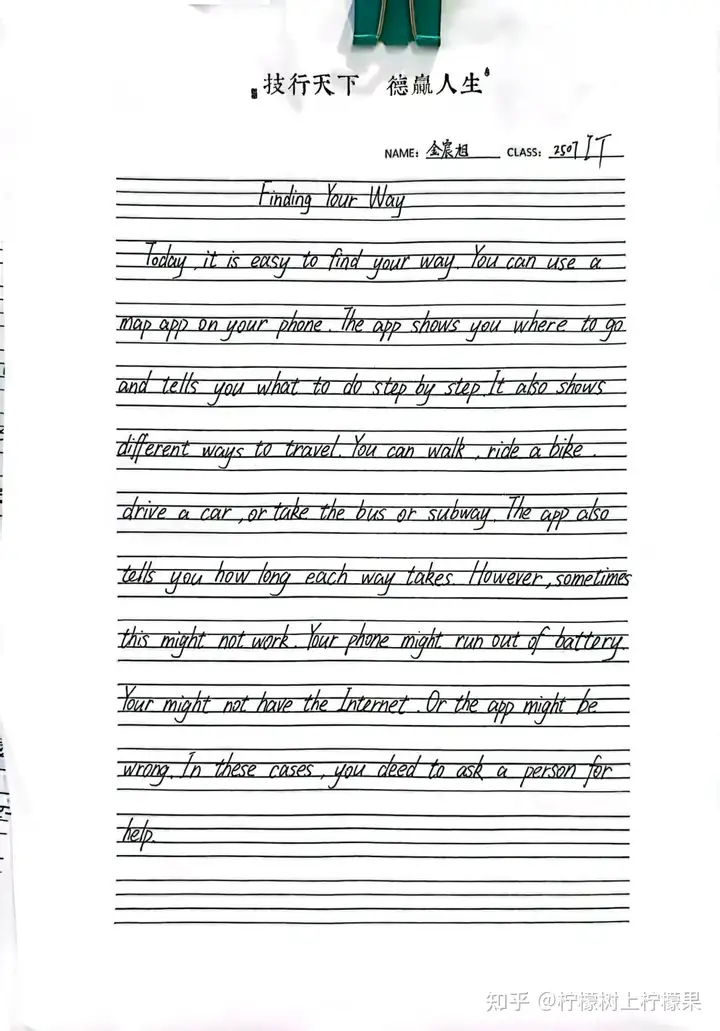 技行天下 德赢人生
NAME: 金宸旭 CLASS: 2507 IT
Finding Your Way
Today, it is easy to find your way. You can use a
map app on your phone. The app shows you where to go
and tells you what to do step by step. It also shows
different ways to travel. You can walk, ride a bike.
drive a car, or take the bus or subway. The app also
tells you how long each way takes. However, sometimes
this might not work. Your phone might run out of battery.
Your might not have the Internet. Or the app might be
wrong. In these cases, you deed to ask a person for
help.
知乎 @柠檬树上柠檬果